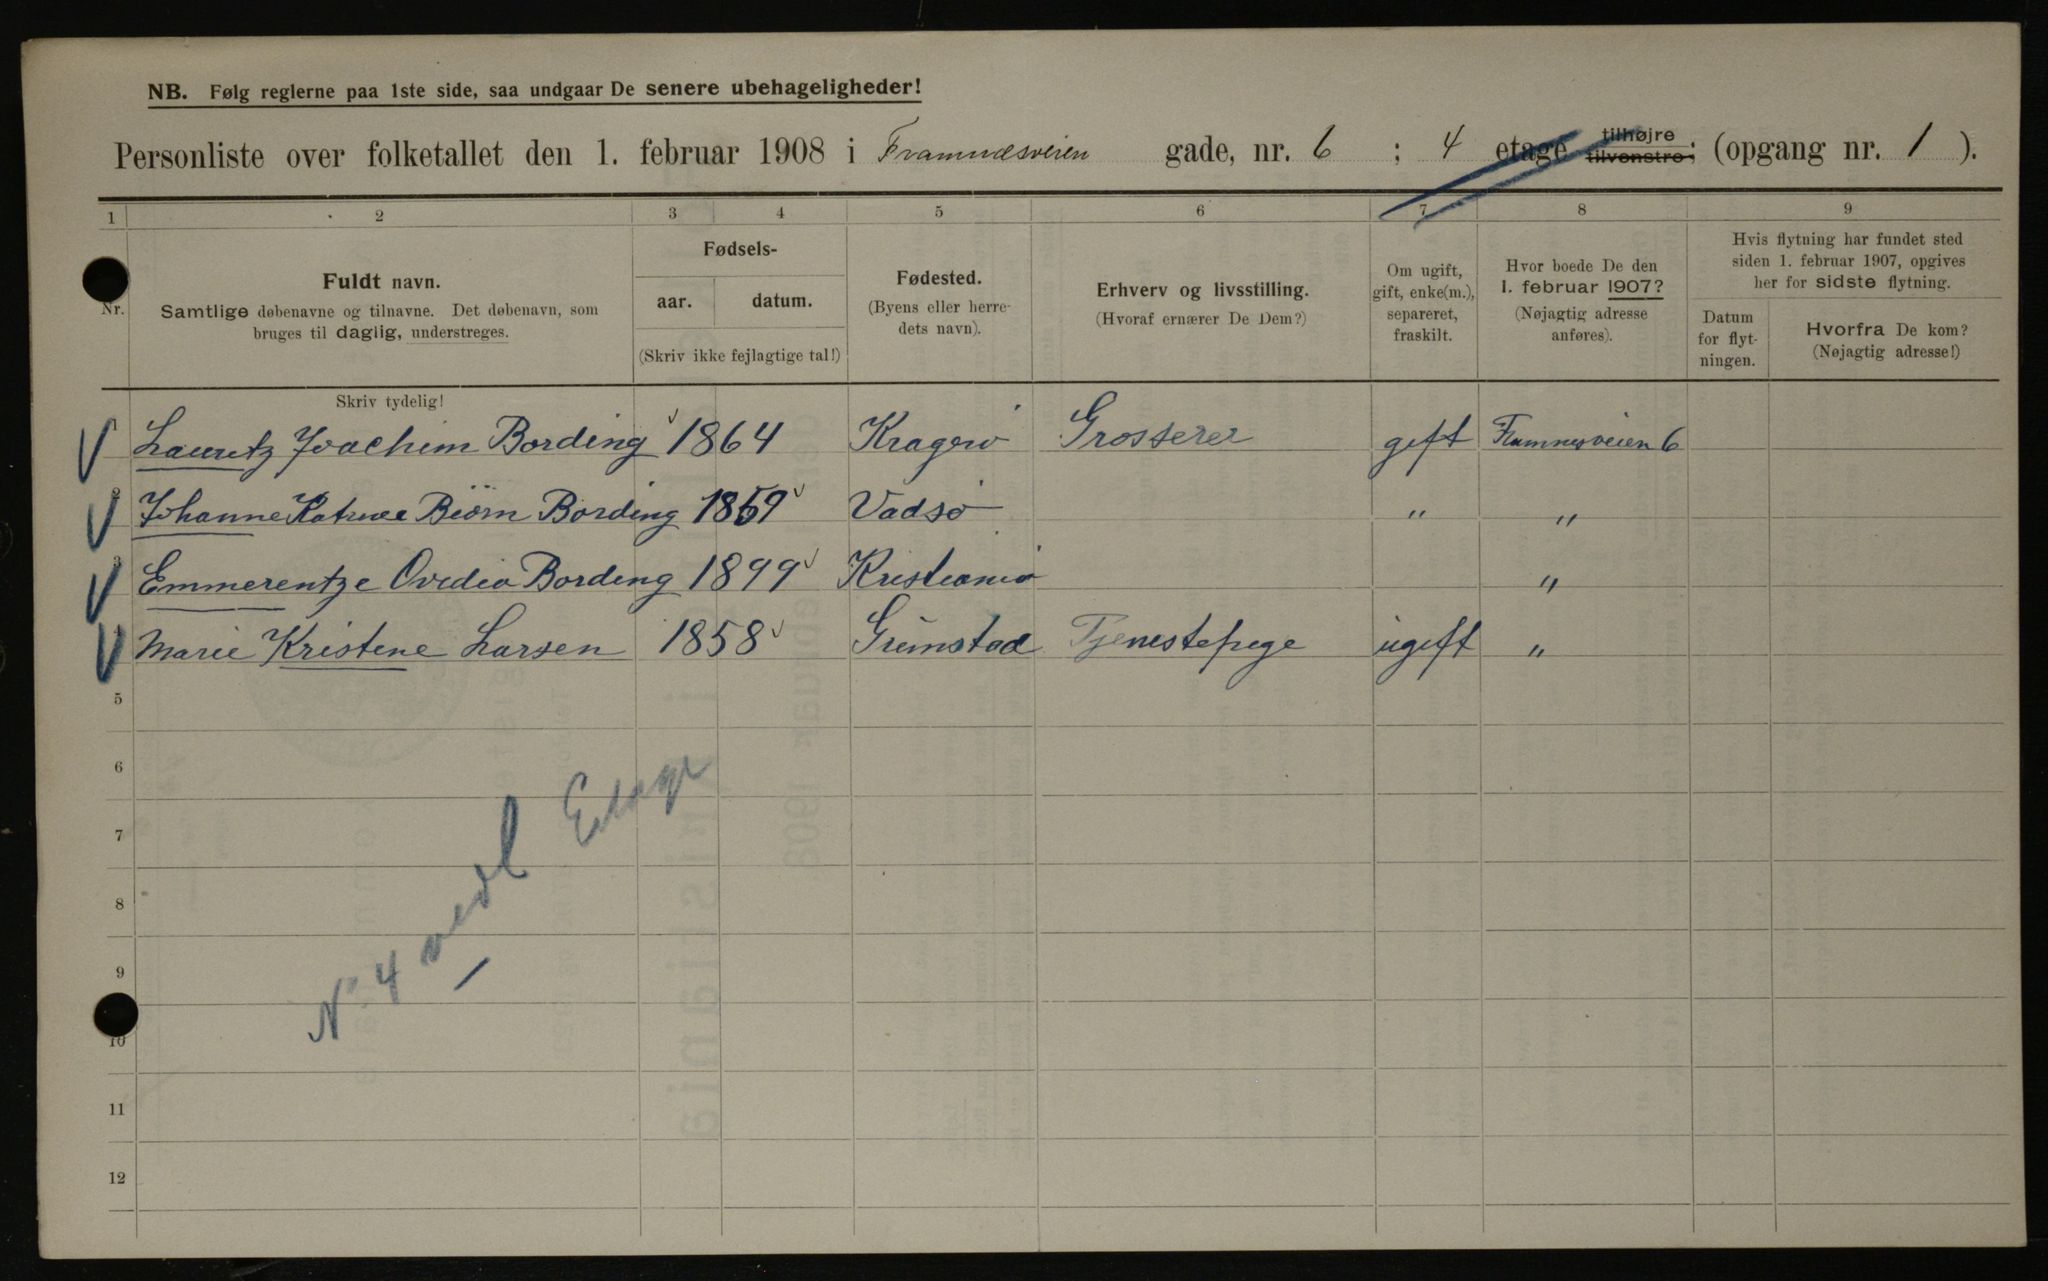 NB. Følg reglerne paa 1ste side, saa undgaar De senere ubehageligheder!
Personliste over folketallet den 1. februar 1908 i Framnæsveien gade, nr. 6 ; 4 etage tilhøjre tilvenstre; (opgang nr. 1 ).
1 2 3 4 5 6 7 8 9
Nr.
Fuldt navn.
Samtlige døbenavne og tilnavne. Det døbenavn, som
bruges til daglig, understreges.
Fødsels-
aar. datum.
(Skriv ikke fejlagtige tal!)
Fødested.
(Byens eller herre-
dets navn).
Erhverv og livsstilling.
(Hvoraf ernærer De Dem?)
Om ugift,
gift, enke(m.),
separeret,
fraskilt.
Hvor boede De den
1. februar 1907?
(Nøjagtig adresse
anføres).
Hvis flytning har fundet sted
siden 1. februar 1907, opgives
her for sidste flytning.
Datum
for flyt-
ningen.
Hvorfra De kom?
(Nøjagtig adresse!)
Skriv tydelig!
1 Lauritz Joachim Bording 1864 Kragerø Grosserer gift Framnesveien 6
2 Johanne Katrine Biörn Bording 1859 Vadsø " "
3 Emmerentze Ovidia Bording 1899 Kristiania "
Marie Kristine Larsen 1858 Grimstad Tjenestepige ugift "
5
6
7
8
9
10
11
12
No 4 midl Etage